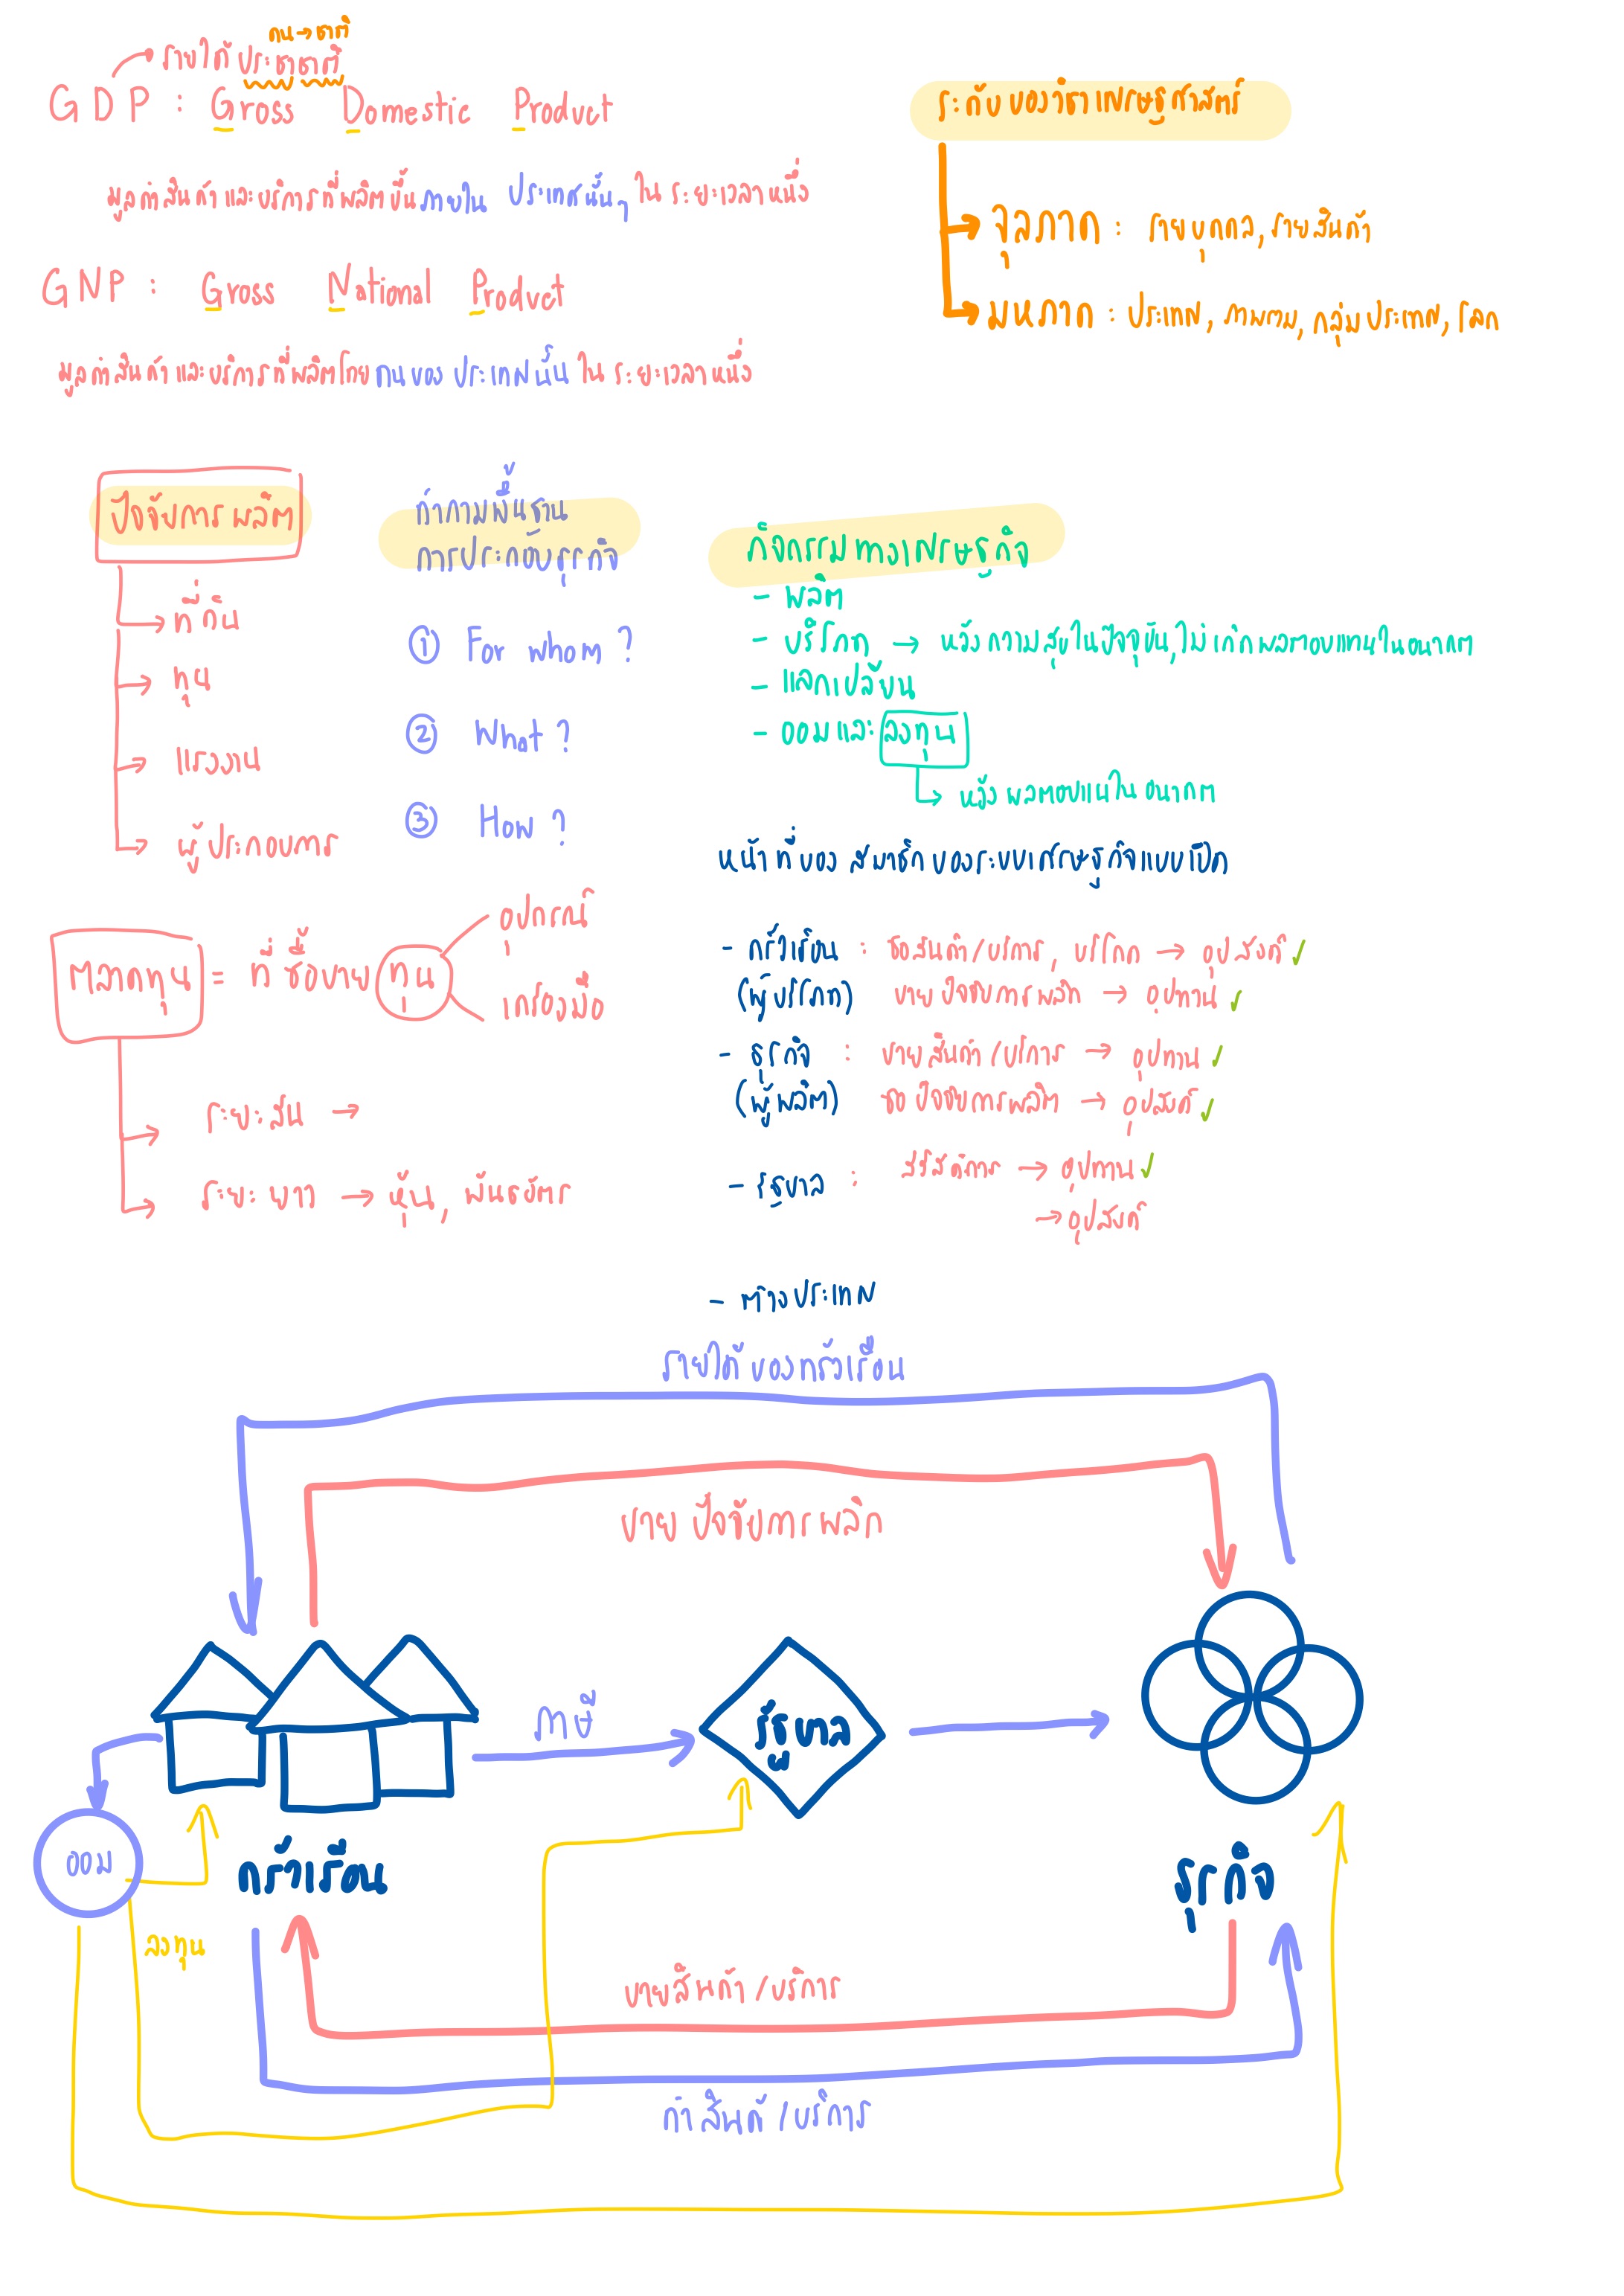 คน → ชาติ
รายได้ ประชาชาติ
GDP : Gross Domestic Product
มูลค่าสินค้าและบริการที่ผลิตขึ้นภายใน ประเทศนั้นๆ ใน ระยะเวลาหนึ่ง
GNP : Gross National Product
มูลค่าสินค้าและบริการที่ผลิตโดยคนของ ประเทศนั้น ใน ระยะเวลาหนึ่ง
ระดับของวิชาเศรษฐศาสตร์
จุลภาค : รายบุคคล, รายสินค้า
มหภาค : ประเทศ, ภาพรวม, กลุ่มประเทศ, โลก
ปัจจัยการผลิต
ที่ดิน
ทุน
แรงงาน
ผู้ประกอบการ
คำถามพื้นฐาน
การประกอบธุรกิจ
① For whom ?
② What ?
③ How ?
กิจกรรมทางเศรษฐกิจ
- ผลิต
- บริโภค → หวังความสุขในปัจจุบัน, ไม่เกิดผลตอบแทนในอนาคต
- แลกเปลี่ยน
- ออมและลงทุน
หวังผลตอบแนในอนาคต
ตลาดทุน = ที่ซื้อขาย ทุน
อุปกรณ์
เครื่องมือ
ระยะสั้น →
ระยะยาว → หุ้น, พันธบัตร
หน้าที่ของ สมาชิกของระบบเศรษฐกิจแบบเปิด
- ครัวเรือน : ซื้อสินค้า/บริการ, บริโภค → อุปสงค์ ✓
(ผู้บริโภค) ขายปัจจัยการผลิต → อุปทาน ✓
- ธุรกิจ : ขายสินค้า/บริการ → อุปทาน ✓
(ผู้ผลิต) ซื้อปัจจัยการผลิต → อุปสงค์ ✓
- รัฐบาล : สวัสดิการ → อุปทาน ✓
→ อุปสงค์
- ต่างประเทศ
รายได้ของครัวเรือน
ขายปัจจัยการผลิต
ภาษี
รัฐบาล
ออม
ครัวเรือน
ธุรกิจ
ลงทุน
ขายสินค้า/บริการ
ค่าสินค้/บริการ